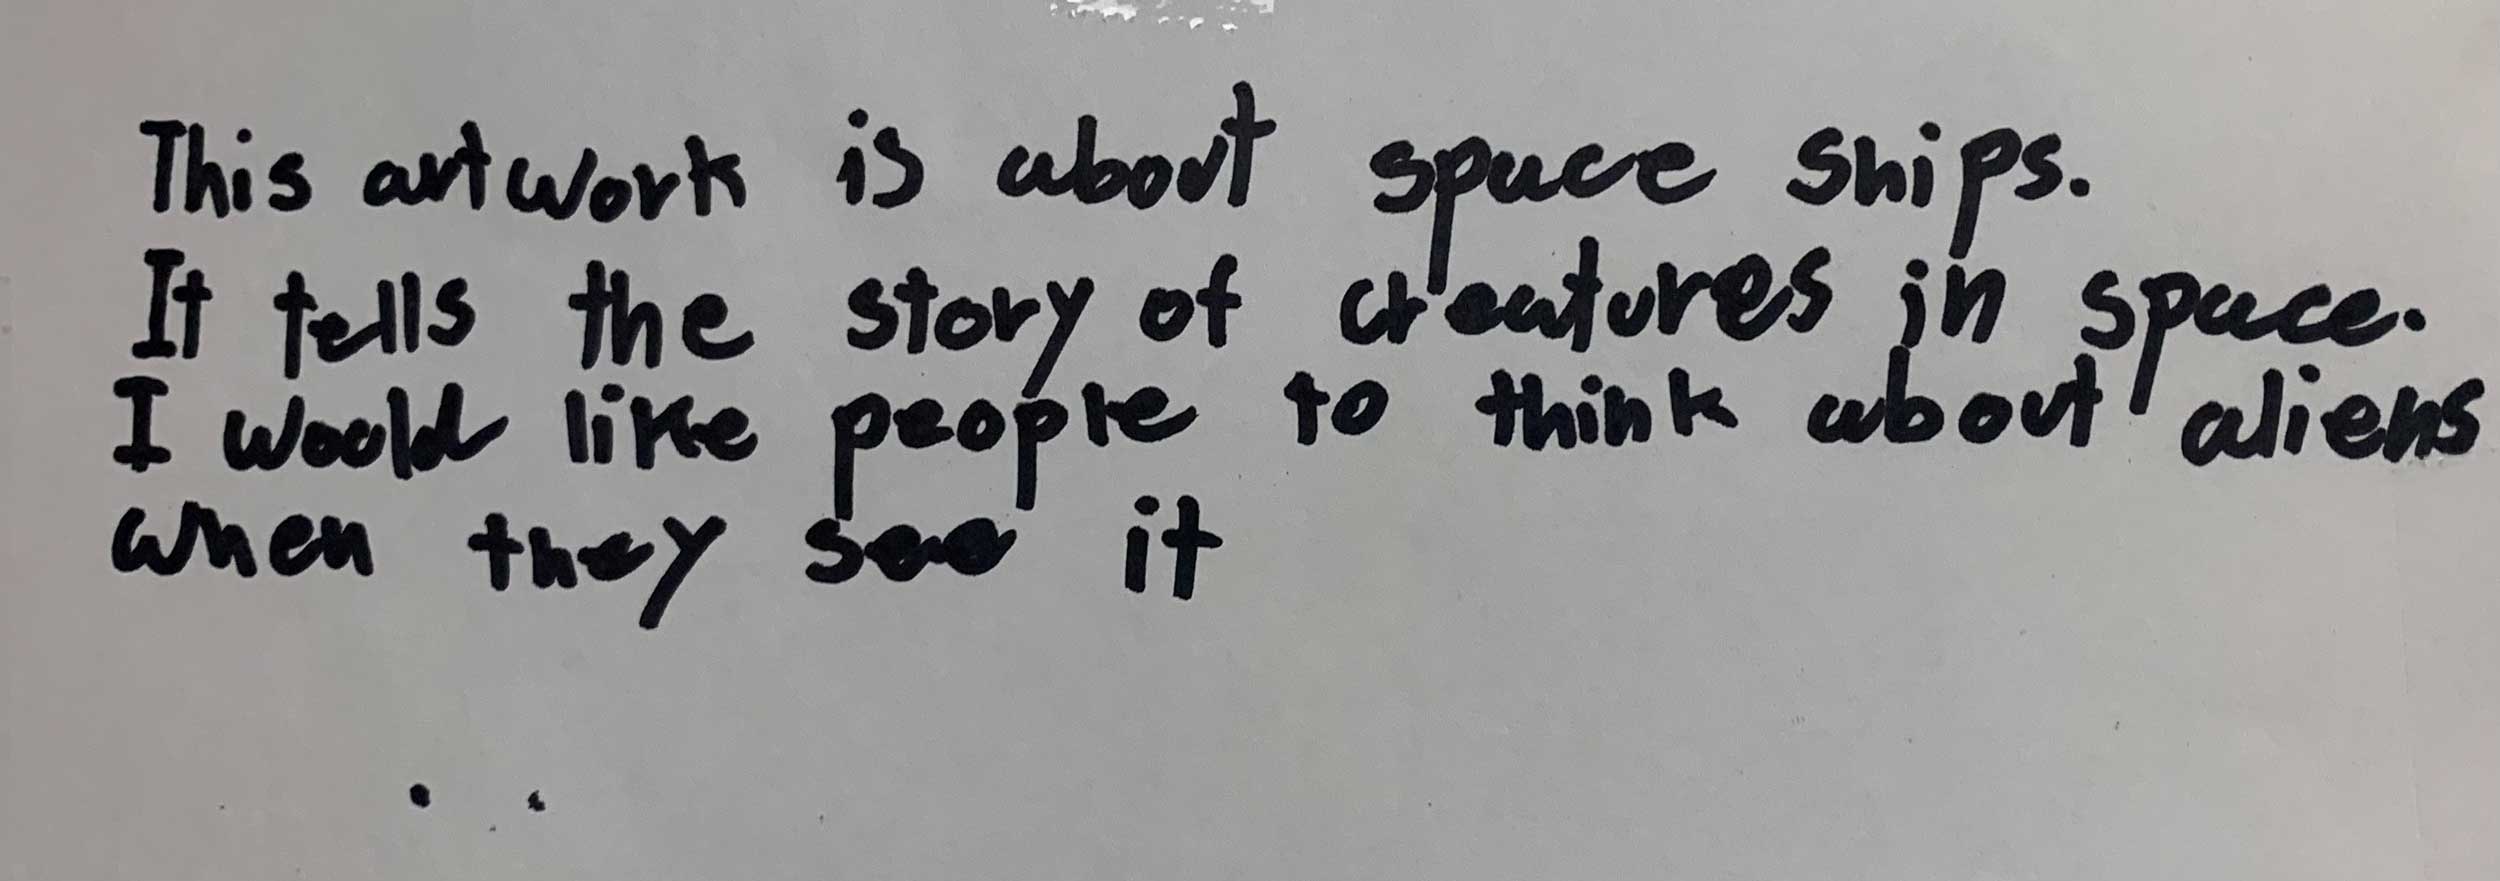 This artwork is about space ships.
It tells the story of creatures in space.
I woold like people to think about aliens
when they see it